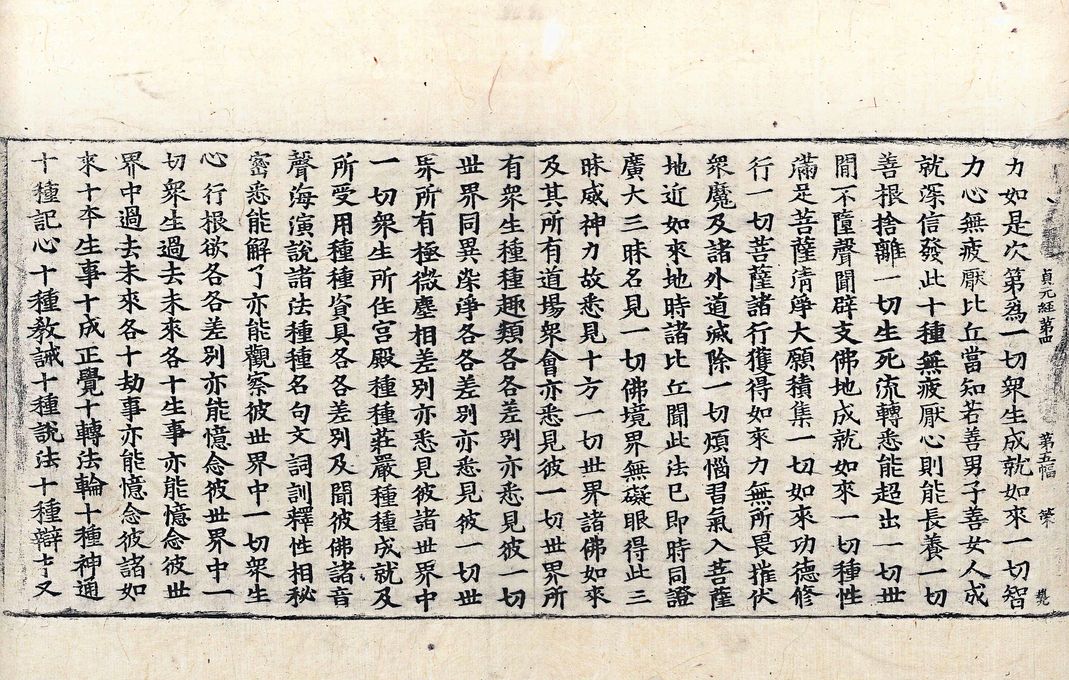 貞元經第四 第五幅 榮
力如是次第爲一切衆生成就如來一切智
力心無疲厭比丘當知若善男子善女人成
就深信發此十種無疲厭心則能長養一切
善根捨離一切生死流轉悉能超出一切世
間不墮聲聞辟支佛地成就如來一切種性
滿足菩薩清淨大願積集一切如來功德修
行一切菩薩諸行獲得如來力無所畏摧伏
衆魔及諸外道滅除一切煩惱習氣入菩薩
地近如來地時諸比丘聞此法已即時同證
廣大三昧名見一切佛境界無礙眼得此三
昧威神力故悉見十方一切世界諸佛如來
及其所有道場衆會亦悉見彼一切世界所
有衆生種種趣類各各差別亦悉見彼一切
世界同異染淨各各差別亦悉見彼一切世
界所有極微塵相差別亦悉見彼諸世界中
一切衆生所住宮殿種種莊嚴種種成就及
所受用種種資具各各差別及聞彼佛諸音
聲海演說諸法種種名句文詞訓釋性相秘
密悉能解了亦能觀察彼世界中一切衆生
心行根欲各各差別亦能憶念彼世界中一
切衆生過去未來各十生事亦能憶念彼世
界中過去未來各十劫事亦能憶念彼諸如
來十本生事十成正覺十轉法輪十種神通
十種記心十種教誡十種說法十種辯才又